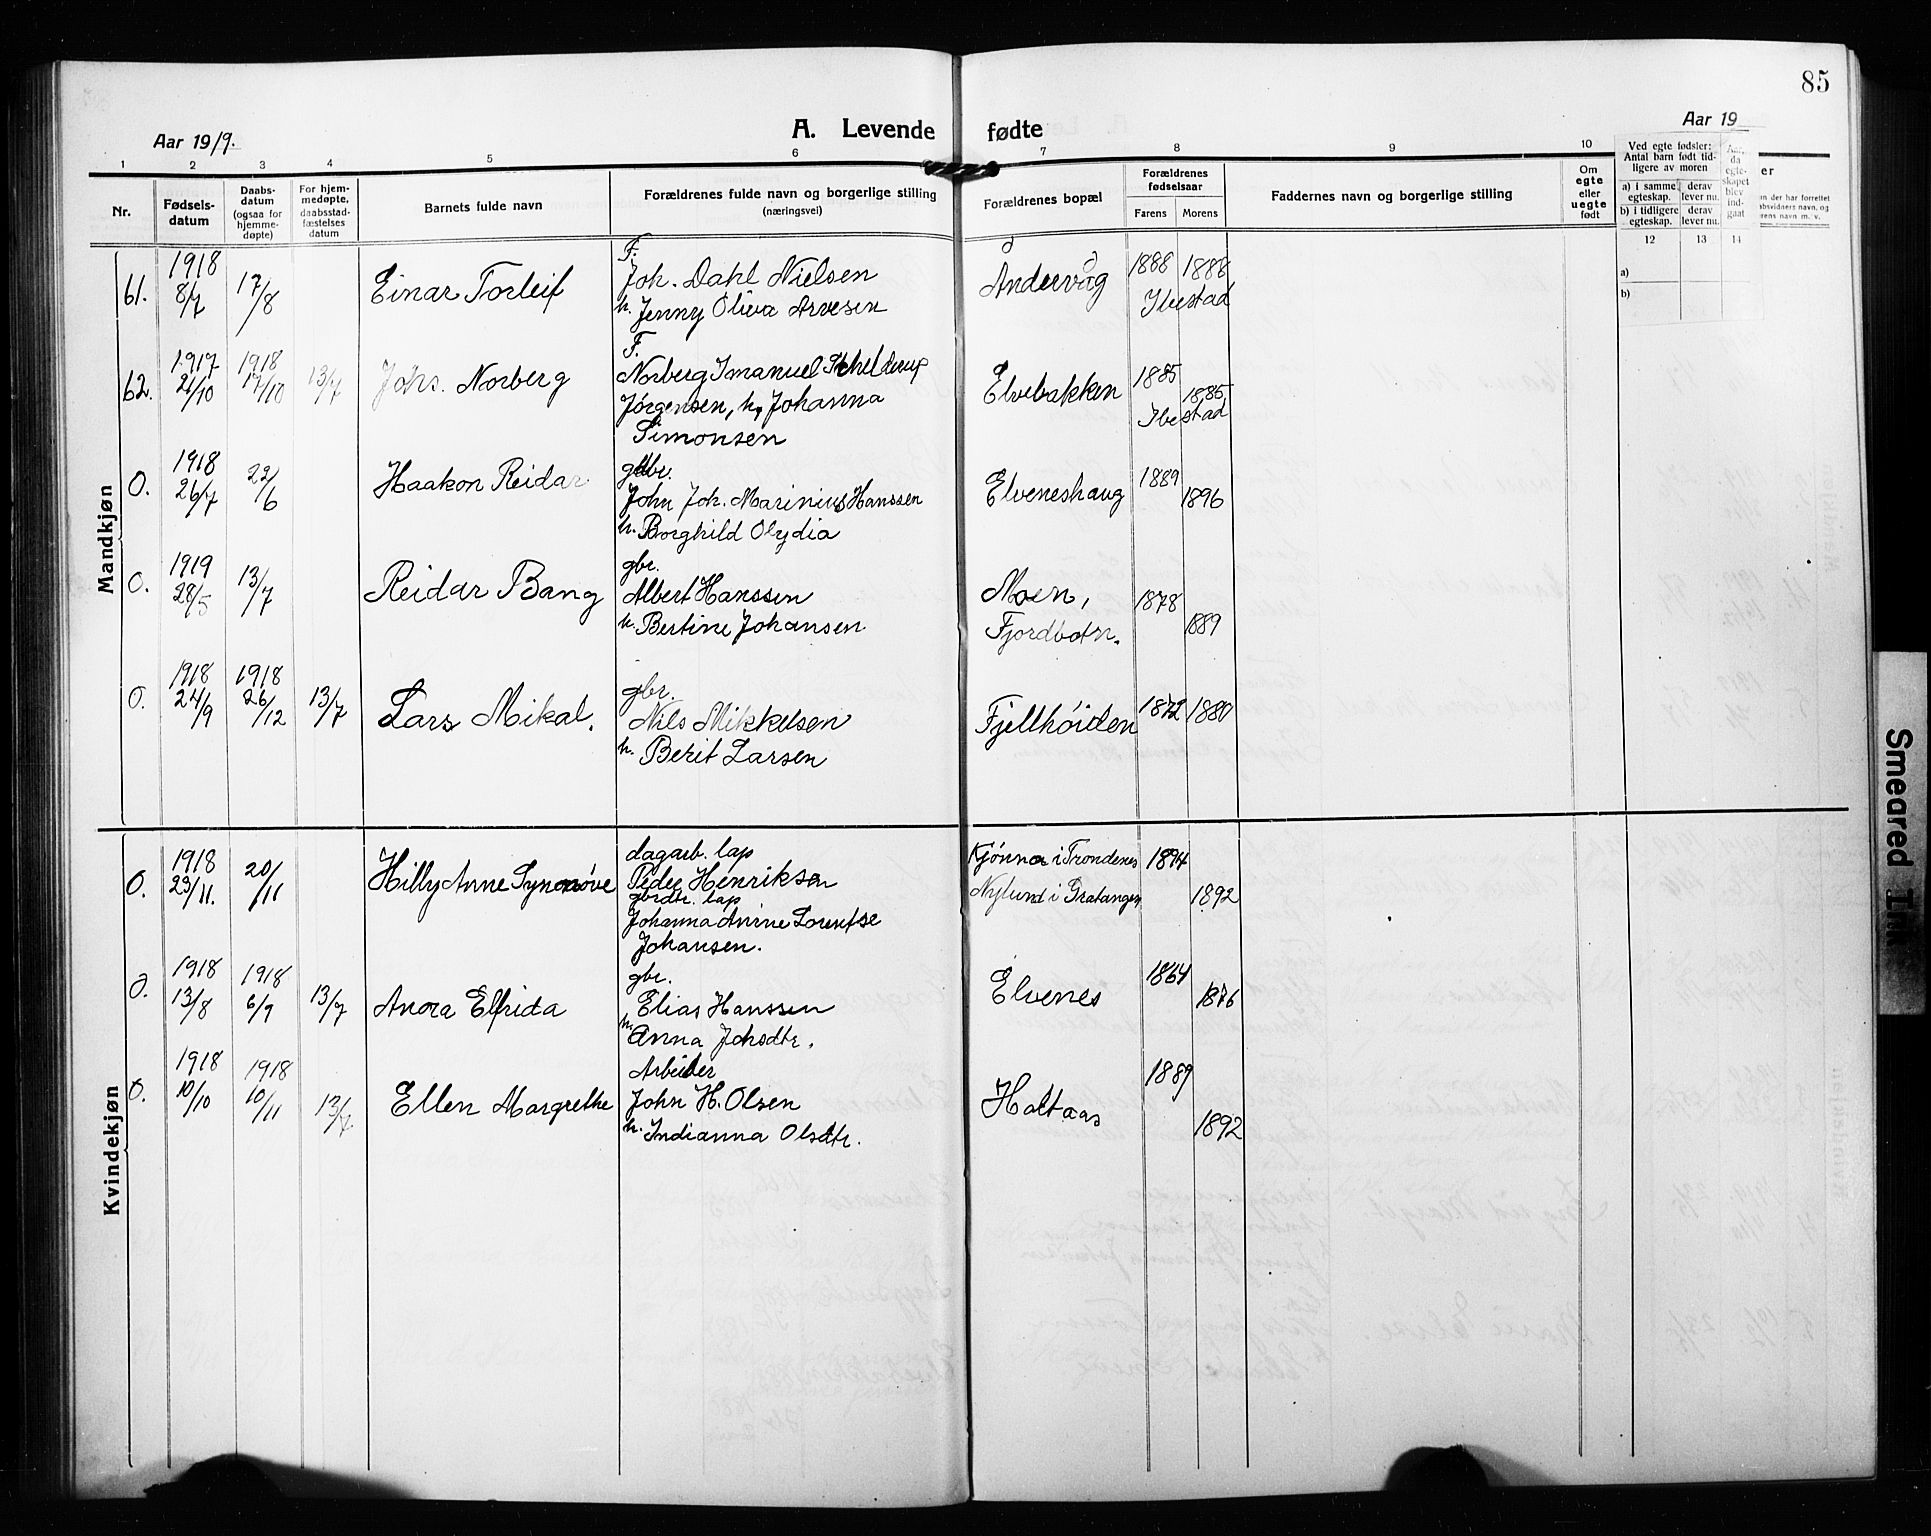 85
Aar 1919.
A. Levende fødte
Aar 19
1 2 3 4 5 6 7 8 9 10
Nr.
Fødsels-
datum
Daabs-
datum
(ogsaa for
hjemme-
døpte)
For hjem-
medøpte,
daabsstad-
fæstelses
datum
Barnets fulde navn
Forældrenes fulde navn og borgerlige stilling
(næringsvei)
Forældrenes bopæl
Forældrenes
fødselsaar
Farens Morens
Faddernes navn og borgerlige stilling
Om
egte
eller
uegte
født
Ved egte fødsler:
Antall barn født tid-
ligere av moren
a) i samme
egteskap. derav
lever nu.
b) i tidligere
egteskap. derav
lever nu.
Aar,
da
egte-
skapet
blev
ind-
gaat
12 13 14
a)
b)
Mandkjøn
61. 1918 8/7 17/8 Einar Torleif
F.
Joh. Dahl Nielsen
h. Jenny Oliva Arvesen
Åndervåg 1888 1888
Ibestad
62. 1917 21/10 1918 17/10 13/7 Johs. Norberg
F.
Norberg Imanuel
Jørgensen, h. Johanna
Simonsen
Elvebakken 1885 1885
Ibestad
O. 1918 26/7 22/6 Haakon Reidar
gdbr.
John Joh. Marinius Hanssen
h. Borghild Olydia
Elveneshaug 1889 1896
O. 1919 28/5 13/7 Reidar Bang
gbr.
Albert Hanssen
h. Bertine Johansen
Moen,
Fjordbotn. 1878 1889
O. 1918 24/9 1918 26/12 13/7 Lars Mikal.
gbr.
Nils Mikkelsen
h. Berit Larsen
Fjellhöiden 1872 1880
Kvindekjøn
O. 1918 23/11. 20/11 Hilly Anne Synnøve
dagarb. lap
Peder Henriksen
gbrdtr. lap
Johanna Anine Lorentse
Johansen.
Kjönna i Trondenes 1894
Nylund i Gratangen 1892
O. 1918 13/8 1918 6/9 13/7 Anora Elfrida
gbr.
Elias Hanssen
h. Anna Johsdtr.
Elvenes 1864 1876
O. 1918 10/10 1918 10/11 13/7 Ellen Margrethe
Arbeider
John H. Olsen
h. Indianna Olsdtr.
Holtaas 1889 1892
Smeared Ink